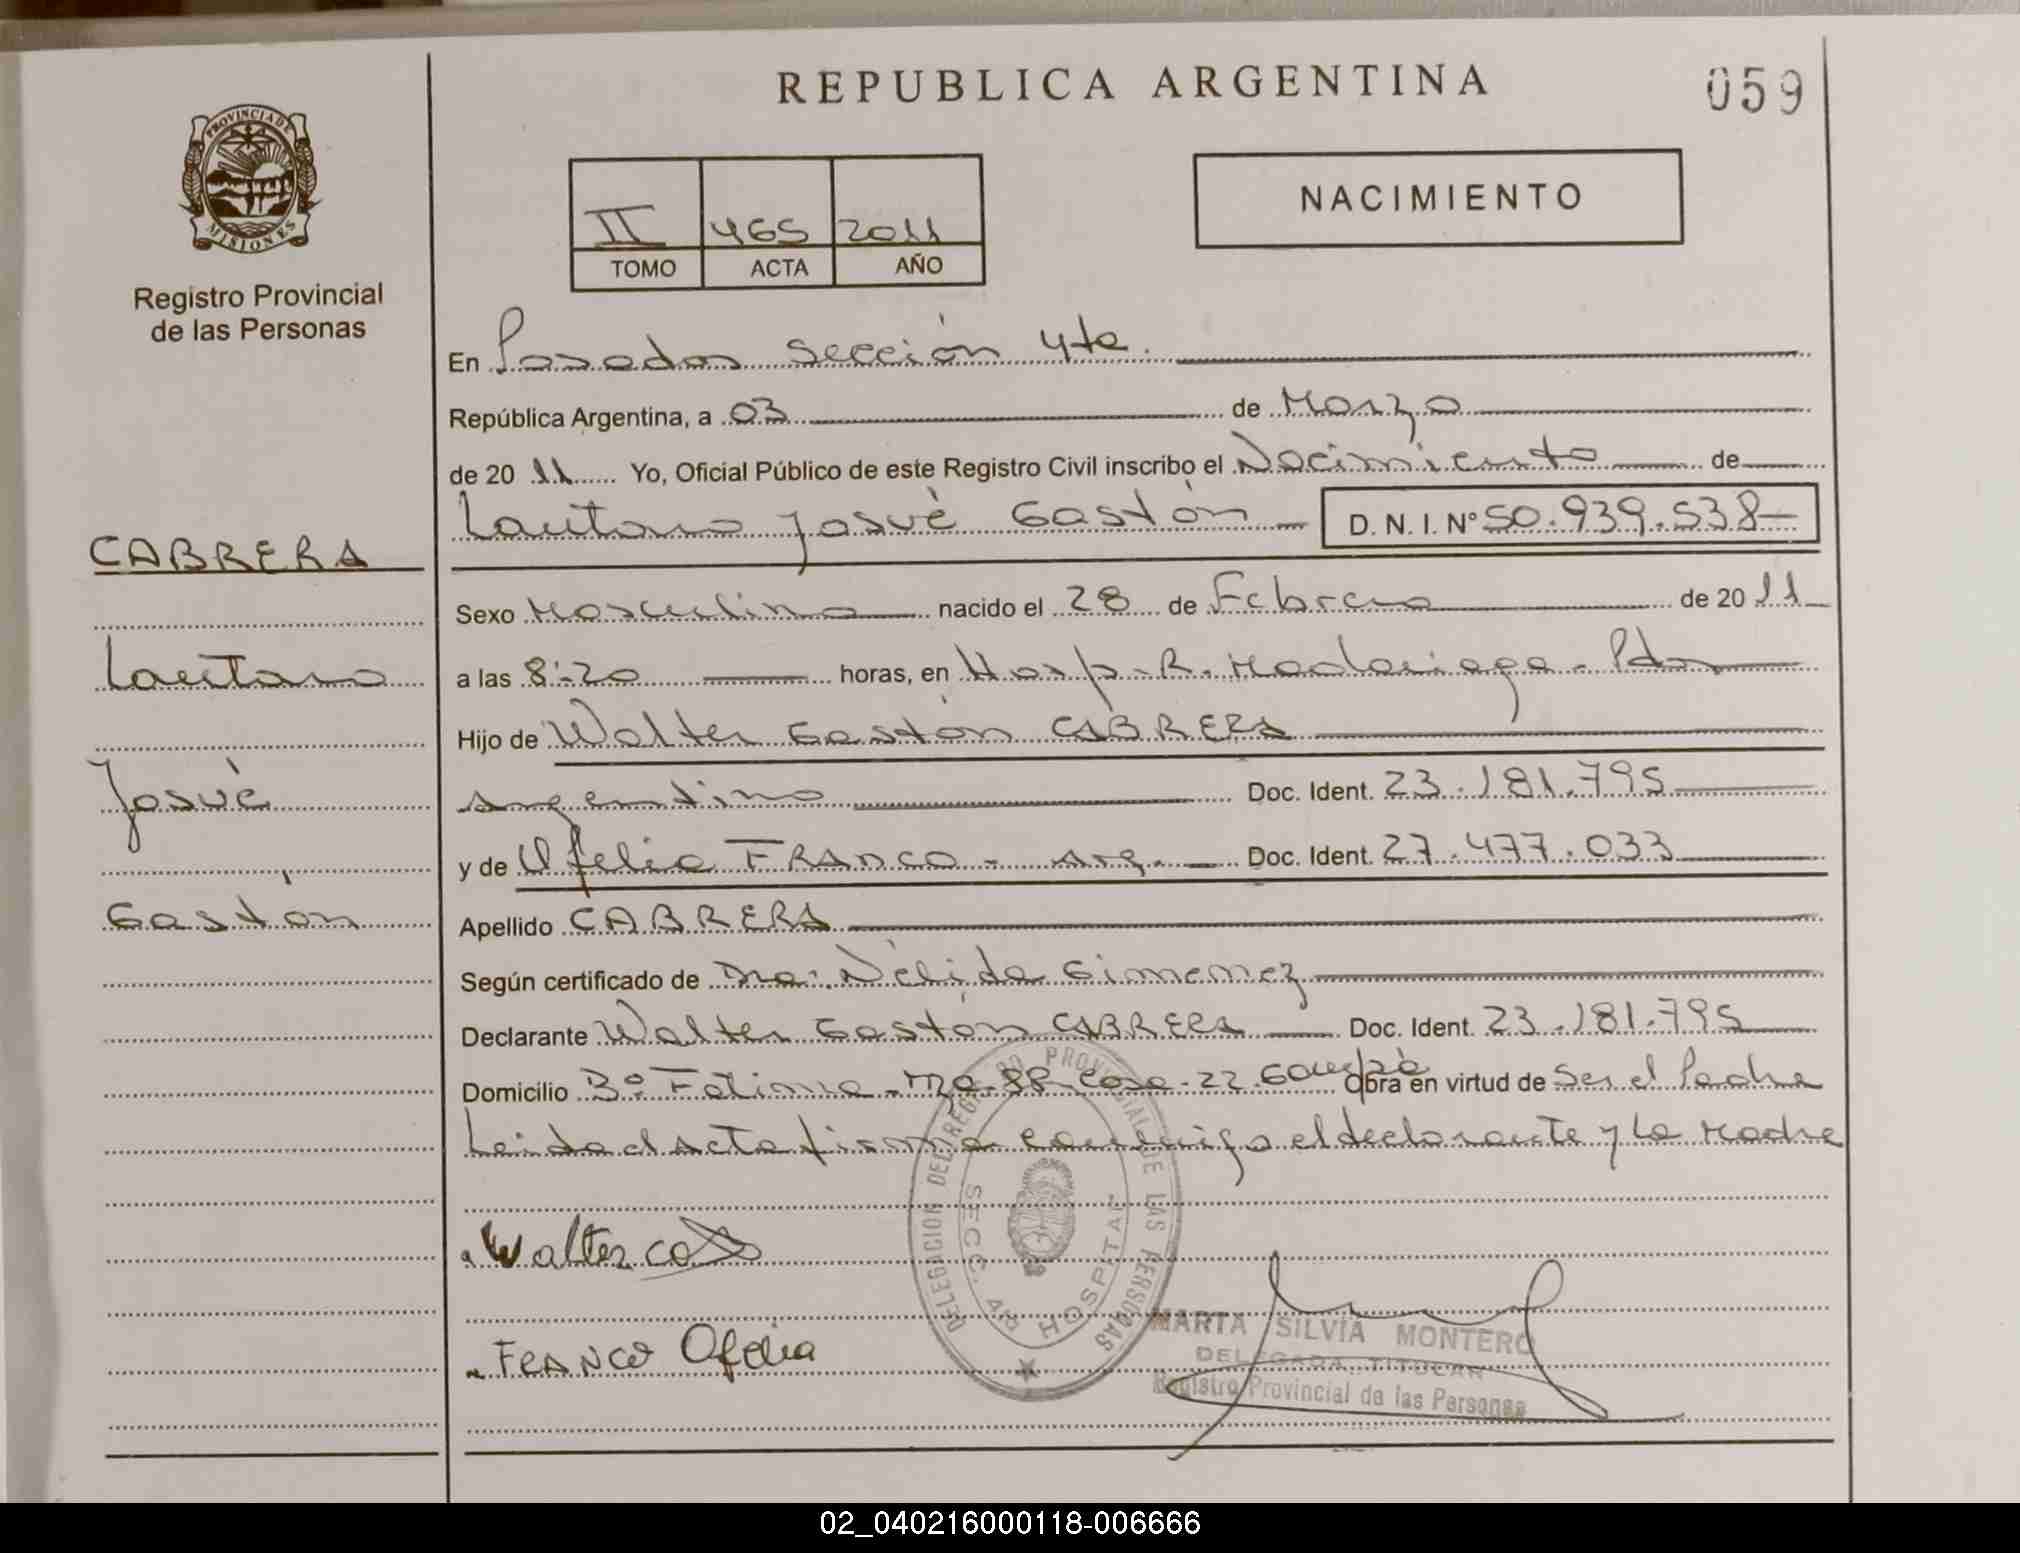 REPUBLICA ARGENTINA
059
PROVINCIA DE
MISIONES
Registro Provincial
de las Personas
II 465 2011
TOMO ACTA AÑO
NACIMIENTO
En Posadas Sección 4ta.
República Argentina, a 03 de Marzo
de 2011 Yo, Oficial Público de este Registro Civil inscribo el Nacimiento de
Lautaro Josué Gastón D. N. I. N° 50.939.538
CABRERA
Lautaro
Josué
Gastón
Sexo Masculino nacido el 28 de Febrero de 2011
a las 8:20 horas, en Hosp. R. Madariaga - Pdas
Hijo de Walter Gastón CABRERA
Argentino Doc. Ident. 23.181.795
y de Ofelia FRANCO - Arg. Doc. Ident. 27.477.033
Apellido CABRERA
Según certificado de Dra. Nélida Gimenez
Declarante Walter Gastón CABRERA Doc. Ident. 23.181.795
Domicilio B° Fatima - Mza - 88 - casa - 22. Garupá Obra en virtud de Ser el Padre
Leida el Acta firma conmigo el declarante y la Madre
DELEGACION DEL REGISTRO PROVINCIAL DE LAS PERSONAS
SECC. 4ta HOSPITAL
Walter
FRANCO Ofelia
MARTA SILVIA MONTERO
DELEGADA TITULAR
Registro Provincial de las Personas
02_040216000118-006666